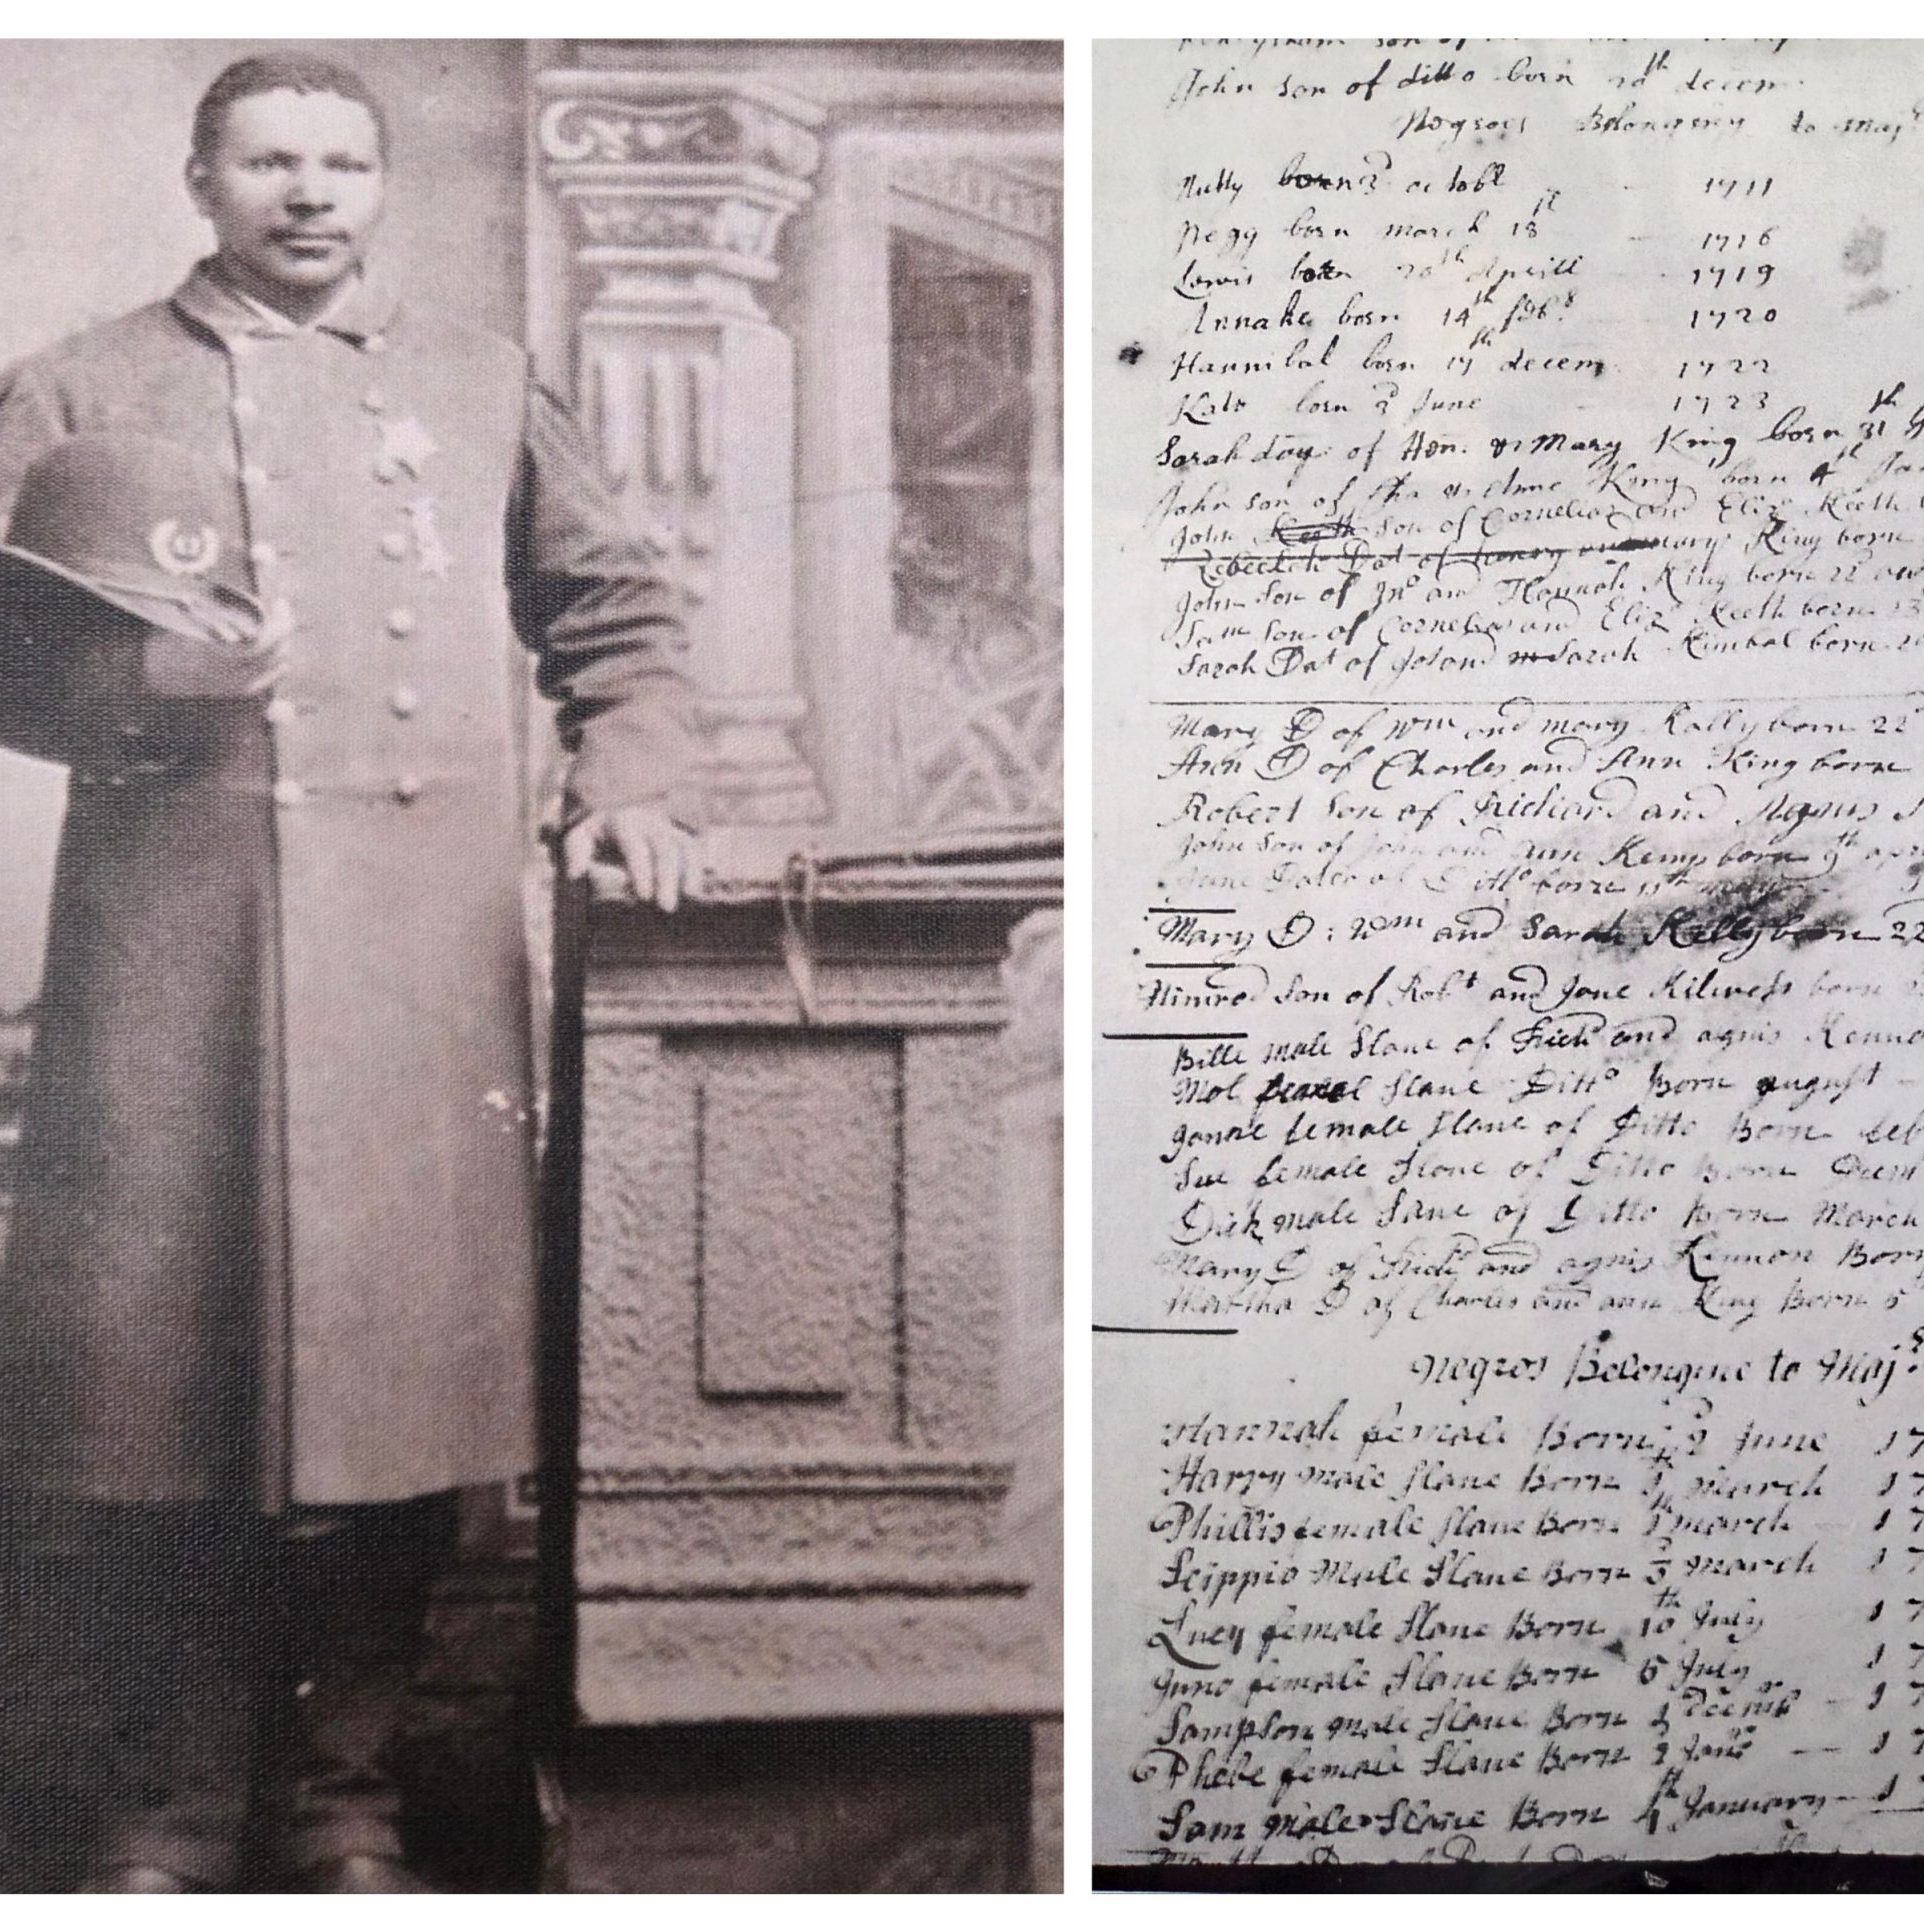 John son of ditto born 20th decem
Negroes Belonging to Maj
born 3d octobr 1711
Pegg born march 18 1716
Lewis born 20th Aprill 1719
Annake born 14th febr 1720
Hannibal born 17th decem 1722
Kate born 3d June 1723
Sarah day of Hen. & Mary King born 31
John son of Cha & Anne King born 4th Jan
John Keeth son of Cornelius and Eliza Keeth
Rebeckah Dat of henry and mary King born
John Son of Jno and Hannah King born 22
Sam Son of Cornelius and Eliza Keeth born 13
Sarah Dat of Jo and Sarah Kimbal born
Mary D of Wm and mary Kally born 22
Ann D of Charles and Ann King born
Robert Son of Richard and Agnus
John Son of John and Ann Kemp born 9th
of Ditto born 11th may
Mary D: Wm and Sarah Kelly born 22
Nimrod Son of Robt and Jane born
Bille male Slave of Richd and agnis Kenno
Mol femal Slave Ditto Born august
female Slave of Ditto Born feb
Sue female Slave of Ditto Born
Dick male Slave of Ditto Born March
Mary D of Richd and agnis Kennon Born
Martha D of Charles and ann King Born 5
Negros Belongine to Maj
Hannah female Born 2 June 17
Harry male Slave Born March 17
Phillis female Slave Born march 17
Scippio Male Slave Born 3 March 17
Lucy female Slave Born 10th July 17
Juno female Slave Born 6 July 17
Sampson male Slave Born Decemb 17
Phebe female Slave Born 2 Janr 17
Sam Male Slave Born 4th January 1